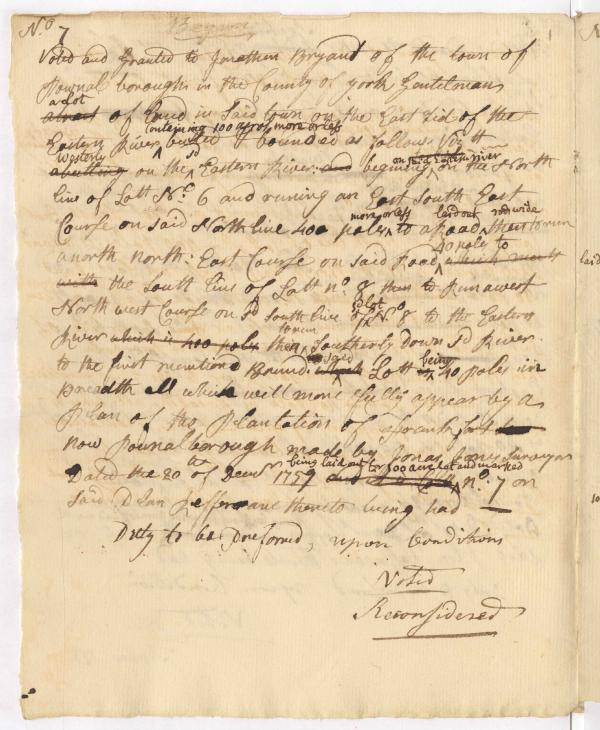 No 7
Voted and Granted to Jonathan Bryant of the town of
Pownalborough in the County of york Gentelman
a Lot
of Land in Said town on the East Sid of the
Contening 100 acres more or less
Eastern River butted & bounded as follows Vizt
Westerly on said Eastern river
abutting on the sd Eastern River: and begining on the North
line of Lott No 6 and runing an East South East
more or less laid out rod wide
Course on said North line 400 poles to a Road then to run
40 poles to
a north north: East Course on said Road which meets
with the South line of Lott no. 8 then to Run a west
Lot
North west Course on sd South line of No 8 to the Eastern
to run
River which is 400 poles then Southerly down sd River
to the first mentioned Bound: which Lott being 40 poles in
Breadth all which will more fully appear by a
Plan of the Plantation of Frankfort
now Pownalborough made by Jonas Jones Surveyor
being laid out for 100 acre lot and marked
Dated the 20th of Decmr 1759 and no: 7 on
said Plan Refference thereto being had
Duty to be Preformed, upon Conditions
Voted
Reconsidered